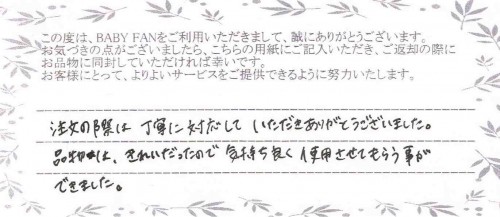 この度は、BABY FANをご利用いただきまして、誠にありがとうございます。
お気づきの点がございましたら、こちらの用紙にご記入いただき、ご返却の際に
お品物に同封していただければ幸いです。
お客様にとって、よりよいサービスをご提供できるように努力いたします。
注文の際は 丁寧に対応して いただきありがとうございました。
品物は、きれいだったので 気持ち良く 使用させてもらう事が
できました。